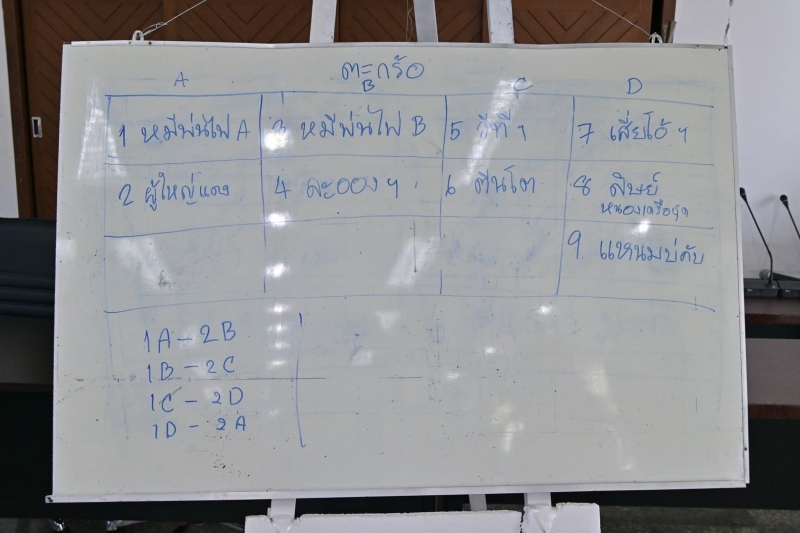 ตะกร้อ
A B C D
1 หมีพ่นไฟ A 3 หมีพ่นไฟ B 5 วีที ฯ 7 เสี่ยโอ้ ฯ
2 ผู้ใหญ่แดง 4 ละออง ฯ 6 ตีนโต 8 ศิษย์
9. แหนมบ่คับ
1A - 2B
1B - 2C
1C - 2D
1D - 2A